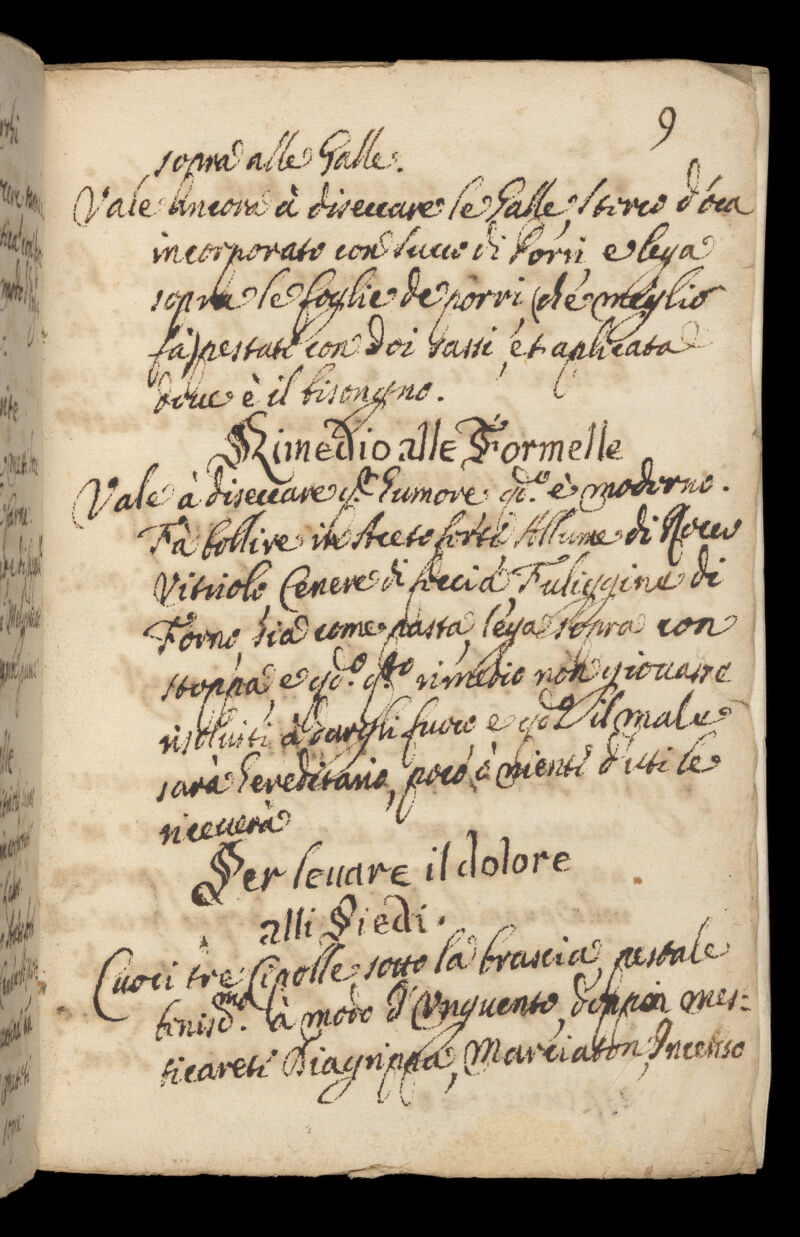 9
sopra alle Galle.
Vale ancora à diseccare le Galle, sterco d'oca
incorporato con succo di Porri, e lega
sopra le foglie de porri (ch'è meglio
fà) pestate con doi sassi, et aplicata
doue è il bisongno.
Rimedio alle Formelle
Vale à diseccare q.to humore qd.o è moderno.
Fà bollire in Aceto forte Allume di Rocco
Vitriolo, Cenere di feccia, Fuliggine di
Forno, sia come pasta, lega sopra con
stoppa, e qd.o q.to rimedio non giouasse
risoluiti à dargli fuoco e qd.o il male
sarà hereditario, poco ò nienti d'utile
riceuerà
Per leuare il dolore
alli Piedi.
Cuoci tre Cipolle sotto la brascia, pestale
beniss.mo à modo d'Vnguento, doppoi mes:
ticareti Diagrippa, Marciaton, Incenso